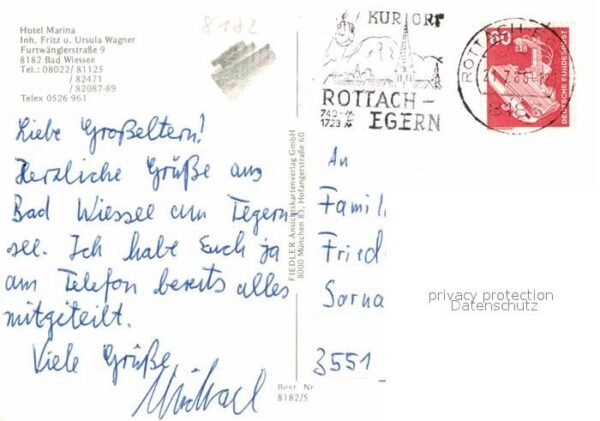 Hotel Marina
Inh. Fritz u. Ursula Wagner
Furtwänglerstraße 9
8182 Bad Wiessee
Tel.: 08022/ 81125
/ 82471
/ 82087-89
Telex 0526 961
8182
KURORT
ROTTACH-
EGERN
740-M
1723 M
ROTTACH-E
80
DEUTSCHE BUNDESPOST
Liebe Großeltern!
Herzliche Grüße aus
Bad Wiessee am Tegern
see. Ich habe Euch ja
am Telefon bereits alles
mitgeteilt.
Viele Grüße
Michael
FIEDLER Ansichtskartenverlag GmbH
8000 München 83, Hofangerstraße 60
Best. Nr
8182/5
An
Famil
Fried
Sarna
3551
privacy protection
Datenschutz